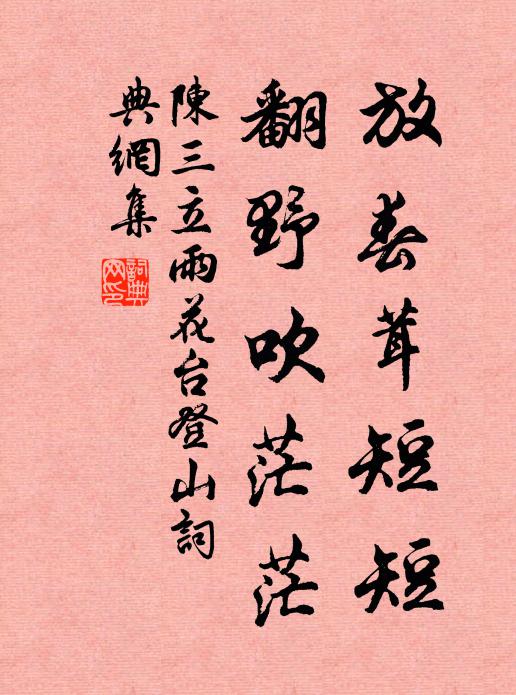 放春茸短短
翻野吹茫茫
陳三立雨花台登山詞
典網集
詞典網印